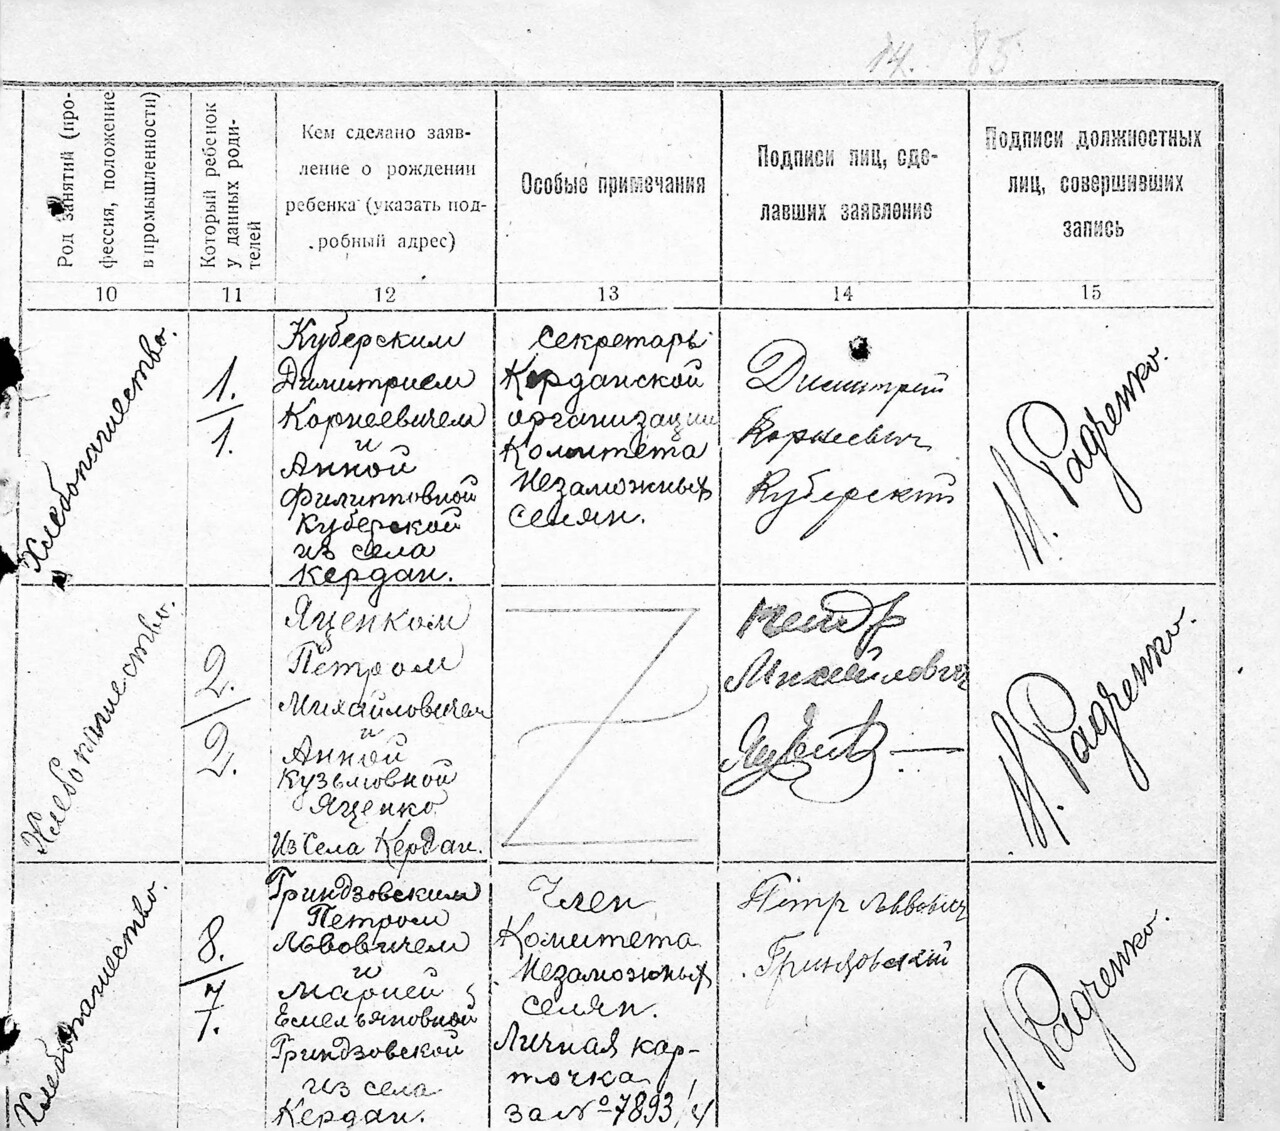 14. 85
Род занятий (про-
фессия, положение
в промышленности)
Который ребенок
у данных роди-
телей
Кем сделано заяв-
ление о рождении
ребенка (указать под-
робный адрес)
Особые примечания
Подписи лиц, сде-
лавших заявление
Подписи должностных
лиц, совершивших
запись
10 11 12 13 14 15
Хлебопашество.
1.
1.
Куберским
Димитрием
Корнеевичем
и
Анной
Филипповной
Куберской
из села
Кердан.
Секретарь
Керданской
организации
Комитета
Незаможных
селян.
Димитрий
Корнеевич
Куберский
М. Радченко.
Хлебопашество.
2.
2.
Яценком
Петром
Михайловичем
и
Анной
Кузьмовной
Яценко
Из Села Кердан.
Михайлович
М. Радченко.
Хлебопашество.
8.
7.
Гриндзовским
Петром
Львовичем
и
Марией
Емельяновной
Гриндзовской
из села
Кердан.
Член
Комитета
Незаможных
селян.
Личная кар-
точка
за № 7893/4
Пётр Львович
Гриндзовский
М. Радченко.